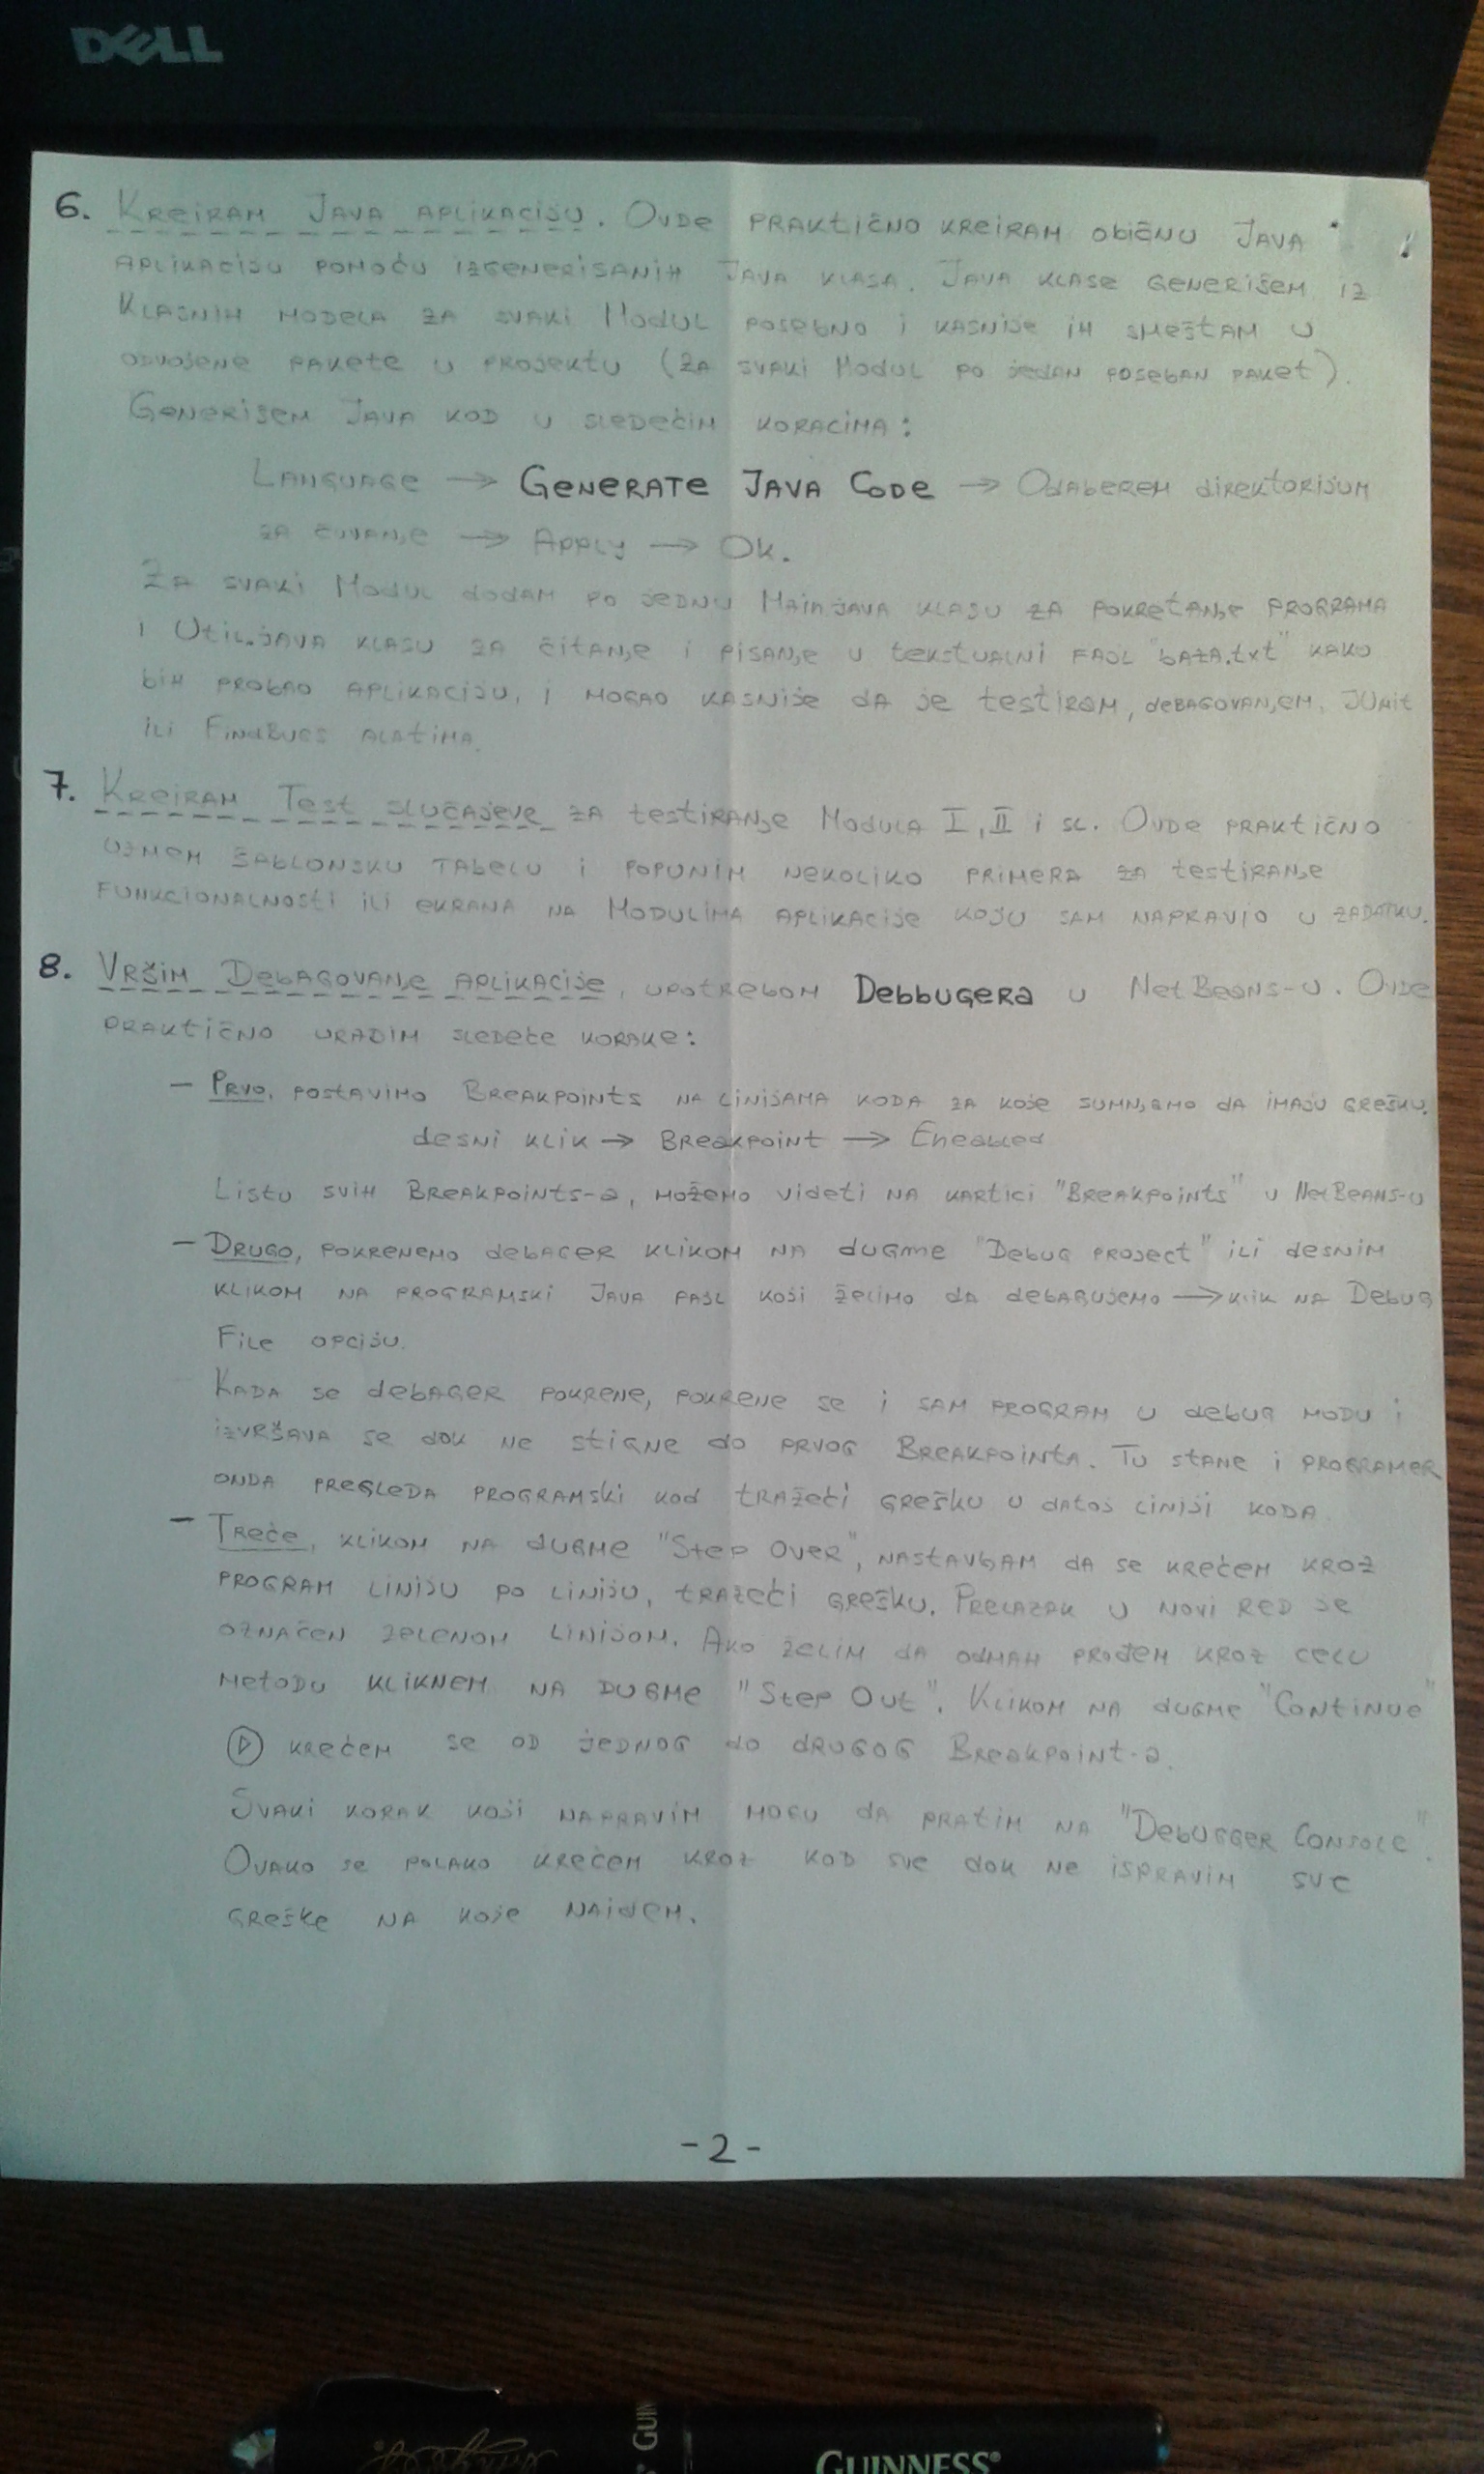 DELL
6. Kreiram Java aplikaciju. Ovde praktično kreiram običnu Java
aplikaciju pomoću izgenerisanih Java klasa. Java klase generišem iz
Klasnih modela za svaki Modul posebno i kasnije ih smeštam u
odvojene pakete u projektu (za svaki Modul po jedan poseban paket).
Generišem Java kod u sledećim koracima:
Language → Generate Java Code → Odaberem direktorijum
za čuvanje → Apply → Ok.
Za svaki Modul dodam po jednu Main.java klasu za pokretanje programa
i Util.java klasu za čitanje i pisanje u tekstualni fajl "baza.txt" kako
bih probao aplikaciju, i mogao kasnije da je testiram, debagovanjem, JUnit
ili FindBugs alatima.
7. Kreiram Test slučajeve za testiranje Modula I, II i sl. Ovde praktično
uzmem šablonsku tabelu i popunim nekoliko primera za testiranje
funkcionalnosti ili ekrana na Modulima aplikacije koju sam napravio u zadatku.
8. Vršim Debagovanje aplikacije, upotrebom Debbugera u NetBeans-u. Ovde
praktično uradim sledeće korake:
- Prvo, postavimo Breakpoints na linijama koda za koje sumnjamo da imaju grešku.
desni klik → Breakpoint → Eneabled
Listu svih Breakpoints-a, možemo videti na kartici "Breakpoints" u NetBeans-u
- Drugo, pokrenemo debager klikom na dugme "Debug project" ili desnim
klikom na programski Java fajl koji želimo da debagujemo → klik na Debug
File opciju.
Kada se debager pokrene, pokrene se i sam program u debug modu i
izvršava se dok ne stigne do prvog Breakpointa. Tu stane i programer
onda pregleda programski kod tražeći grešku u datoj liniji koda.
- Treće, klikom na dugme "Step Over", nastavljam da se krećem kroz
program liniju po liniju, tražeći grešku. Prelazak u novi red je
označen zelenom linijom. Ako želim da odmah prođem kroz celu
metodu kliknem na dugme "Step Out". Klikom na dugme "Continue"
krećem se od jednog do drugog Breakpoint-a.
Svaki korak koji napravim mogu da pratim na "Debugger Console".
Ovako se polako krećem kroz kod sve dok ne ispravim sve
greške na koje naiđem.
-2-
GUINNESS®